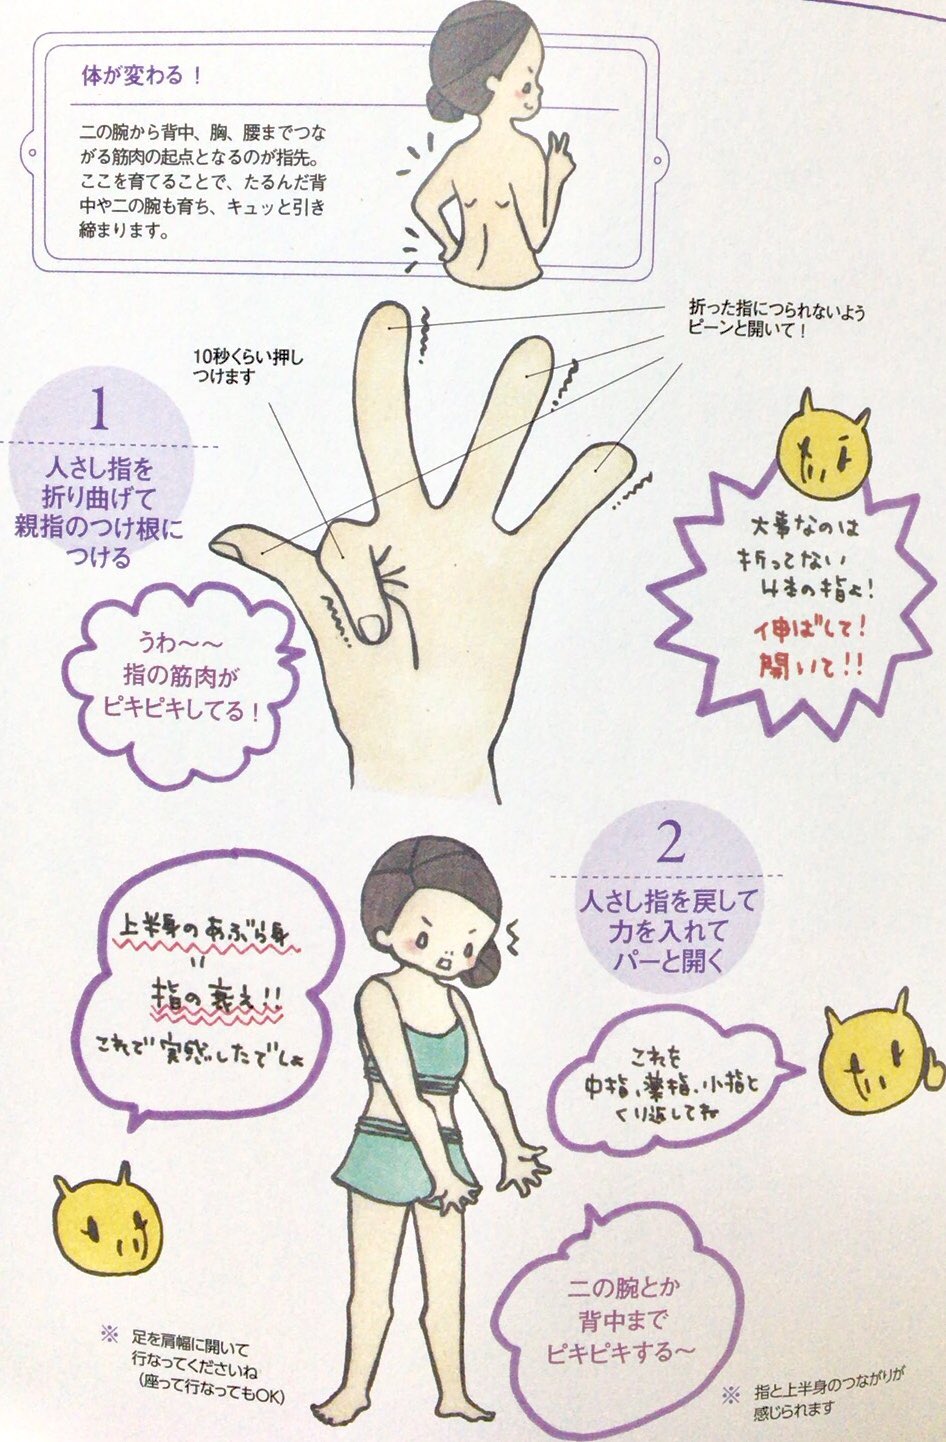 体が変わる！
二の腕から背中、胸、腰までつな
がる筋肉の起点となるのが指先。
ここを育てることで、たるんだ背
中や二の腕も育ち、キュッと引き
締まります。
折った指につられないよう
ピーンと開いて！
10秒くらい押し
つけます
1
人さし指を
折り曲げて
親指のつけ根に
つける
大事なのは
折ってない
4本の指よ！
伸ばして！
開いて！！
うわ〜〜
指の筋肉が
ピキピキしてる！
2
人さし指を戻して
力を入れて
パーと開く
上半身のあぶら身
＝
指の衰え！！
これで実感したでしょ
これを
中指、薬指、小指と
くり返してね
二の腕とか
背中まで
ピキピキする〜
※ 足を肩幅に開いて
行なってくださいね
（座って行なってもOK）
※ 指と上半身のつながりが
感じられます